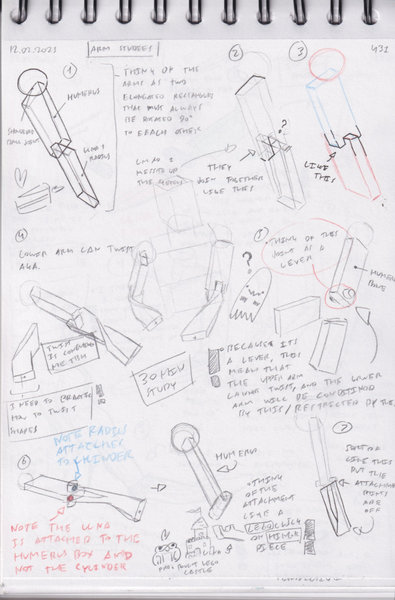 12.02.2023
ARM STUDIES
431
1
HUMERUS
SHOULDER
BALL JOINT
ULNA &
RADIUS
- THINK OF THE
ARMS AS TWO
ELONGATED RECTANGLES
THAT MUST ALWAYS
BE ROTATED 90°
TO EACH OTHER
2
?
LMAO I
MESSED UP
THE
THEY
JOIN TOGETHER
LIKE THIS
3
LIKE
THIS
4
LOWER ARM CAN TWIST
TWIST
IS CONFUSING
ME TBH
I NEED TO PRACTICE
HOW TO TWIST
SHAPES
30 MIN
STUDY
5
THINK OF THIS
JOINT AS A
LEVER
HUMERUS
BONE
?
BECAUSE IT'S
A LEVER, THIS
MEANS THAT
THE UPPER ARM
CANNOT TWIST, AND THE LOWER
ARM WILL BE CONDITIONED
BY THIS / RESTRICTED BY THE
6
NOTE RADIUS
ATTACHES
TO CYLINDER
NOTE THE ULNA
IS ATTACHED TO THE
HUMERUS BOX AND
NOT THE CYLINDER
HUMERUS
- THINK
OF THE
ATTACHMENT
LIKE A
LEGO CLUTCH
OR HINGE
PIECE
LEGO
CASTLE
7
SORT OF
LIKE THIS
BUT THE
ATTACHMENT
POINTS
ARE
OFF